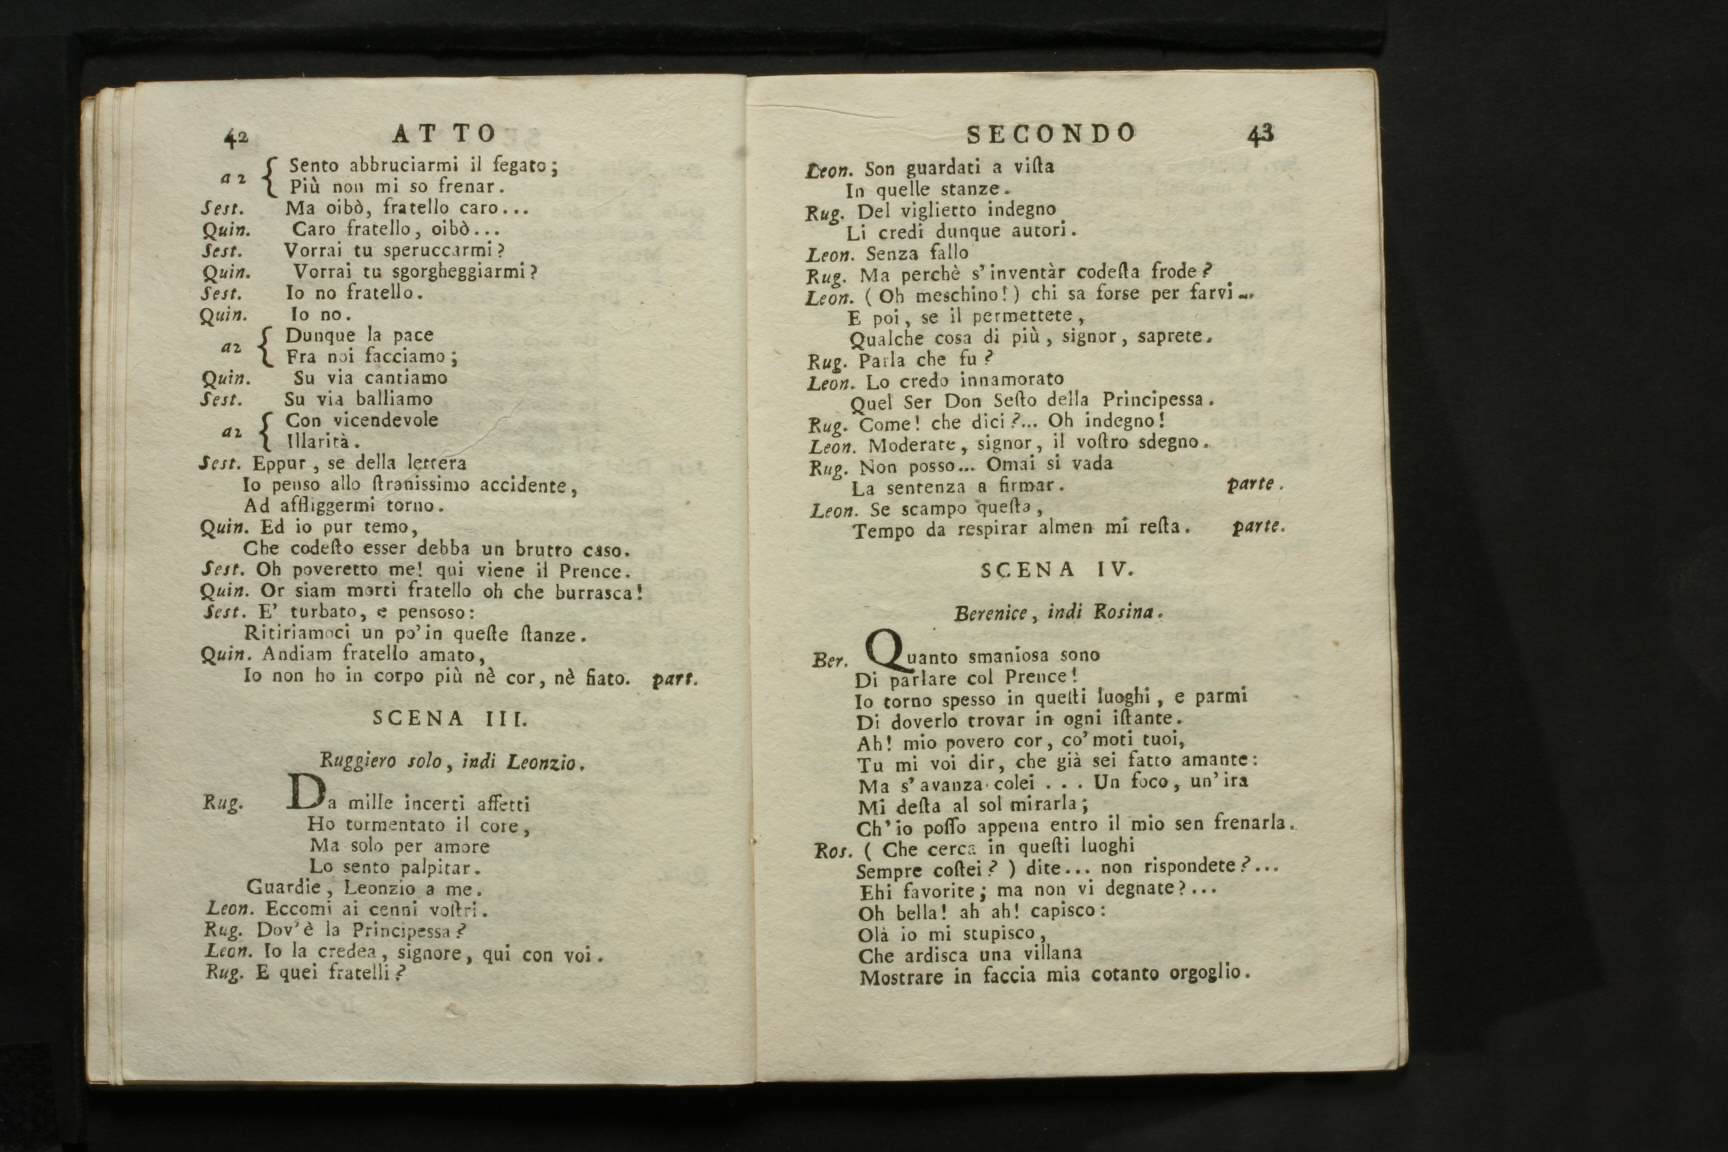 42 ATTO
a 2 { Sento abbruciarmi il fegato;
Più non mi so frenar.
Sest. Ma oibò, fratello caro...
Quin. Caro fratello, oibò...
Sest. Vorrai tu speruccarmi?
Quin. Vorrai tu sgorgheggiarmi?
Sest. Io no fratello.
Quin. Io no.
a2 { Dunque la pace
Fra noi facciamo;
Quin. Su via cantiamo
Sest. Su via balliamo
a2 { Con vicendevole
Illarità.
Sest. Eppur, se della lettera
Io penso allo ſtranissimo accidente,
Ad affliggermi torno.
Quin. Ed io pur temo,
Che codeſto esser debba un brutto caso.
Sest. Oh poveretto me! qui viene il Prence.
Quin. Or siam morti fratello oh che burrasca!
Sest. E' turbato, e pensoso:
Ritiriamoci un po' in queſte ſtanze.
Quin. Andiam fratello amato,
Io non ho in corpo più nè cor, nè fiato. part.
SCENA III.
Ruggiero solo, indi Leonzio.
Rug. Da mille incerti affetti
Ho tormentato il core,
Ma solo per amore
Lo sento palpitar.
Guardie, Leonzio a me.
Leon. Eccomi ai cenni voſtri.
Rug. Dov'è la Principessa?
Leon. Io la credea, signore, qui con voi.
Rug. E quei fratelli?
SECONDO 43
Leon. Son guardati a viſta
In quelle stanze.
Rug. Del viglietto indegno
Li credi dunque autori.
Leon. Senza fallo
Rug. Ma perchè s'inventàr codeſta frode?
Leon. (Oh meschino!) chi sa forse per farvi...
E poi, se il permettete,
Qualche cosa di più, signor, saprete.
Rug. Parla che fu?
Leon. Lo credo innamorato
Quel Ser Don Seſto della Principessa.
Rug. Come! che dici?... Oh indegno!
Leon. Moderate, signor, il voſtro sdegno.
Rug. Non posso... Omai si vada
La sentenza a firmar. parte.
Leon. Se scampo queſta,
Tempo da respirar almen mi reſta. parte.
SCENA IV.
Berenice, indi Rosina.
Ber. Quanto smaniosa sono
Di parlare col Prence!
Io torno spesso in queſti luoghi, e parmi
Di doverlo trovar in ogni iſtante.
Ah! mio povero cor, co' moti tuoi,
Tu mi voi dir, che già sei fatto amante:
Ma s'avanza colei ... Un foco, un'ira
Mi deſta al sol mirarla;
Ch'io poſſo appena entro il mio sen frenarla.
Ros. (Che cerca in queſti luoghi
Sempre coſtei?) dite... non rispondete?...
Ehi favorite; ma non vi degnate?...
Oh bella! ah ah! capisco:
Olà io mi stupisco,
Che ardisca una villana
Mostrare in faccia mia cotanto orgoglio.